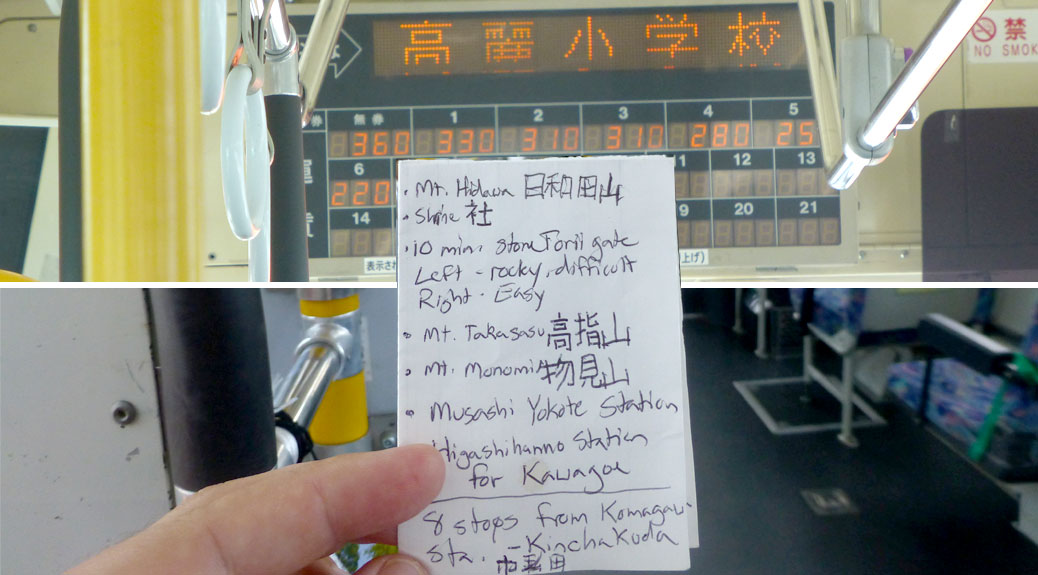 高麗小学校
禁
NO SMOK
券 無券 1 2 3 4 5
360 330 310 310 280 25
6 12 13
220
14 9 20 21
表示され 上げ)
• Mt. Hidawa 日和田山
• Shrine 社
• 10 min. stone Torii gate
Left - rocky, difficult
Right - Easy
• Mt. Takasasu 高指山
• Mt. Monomi 物見山
• Musashi Yokote Station
Higashihanno Station
for Kawagoe
8 stops from Komagawa
sta. - Kinchakuda
巾着田